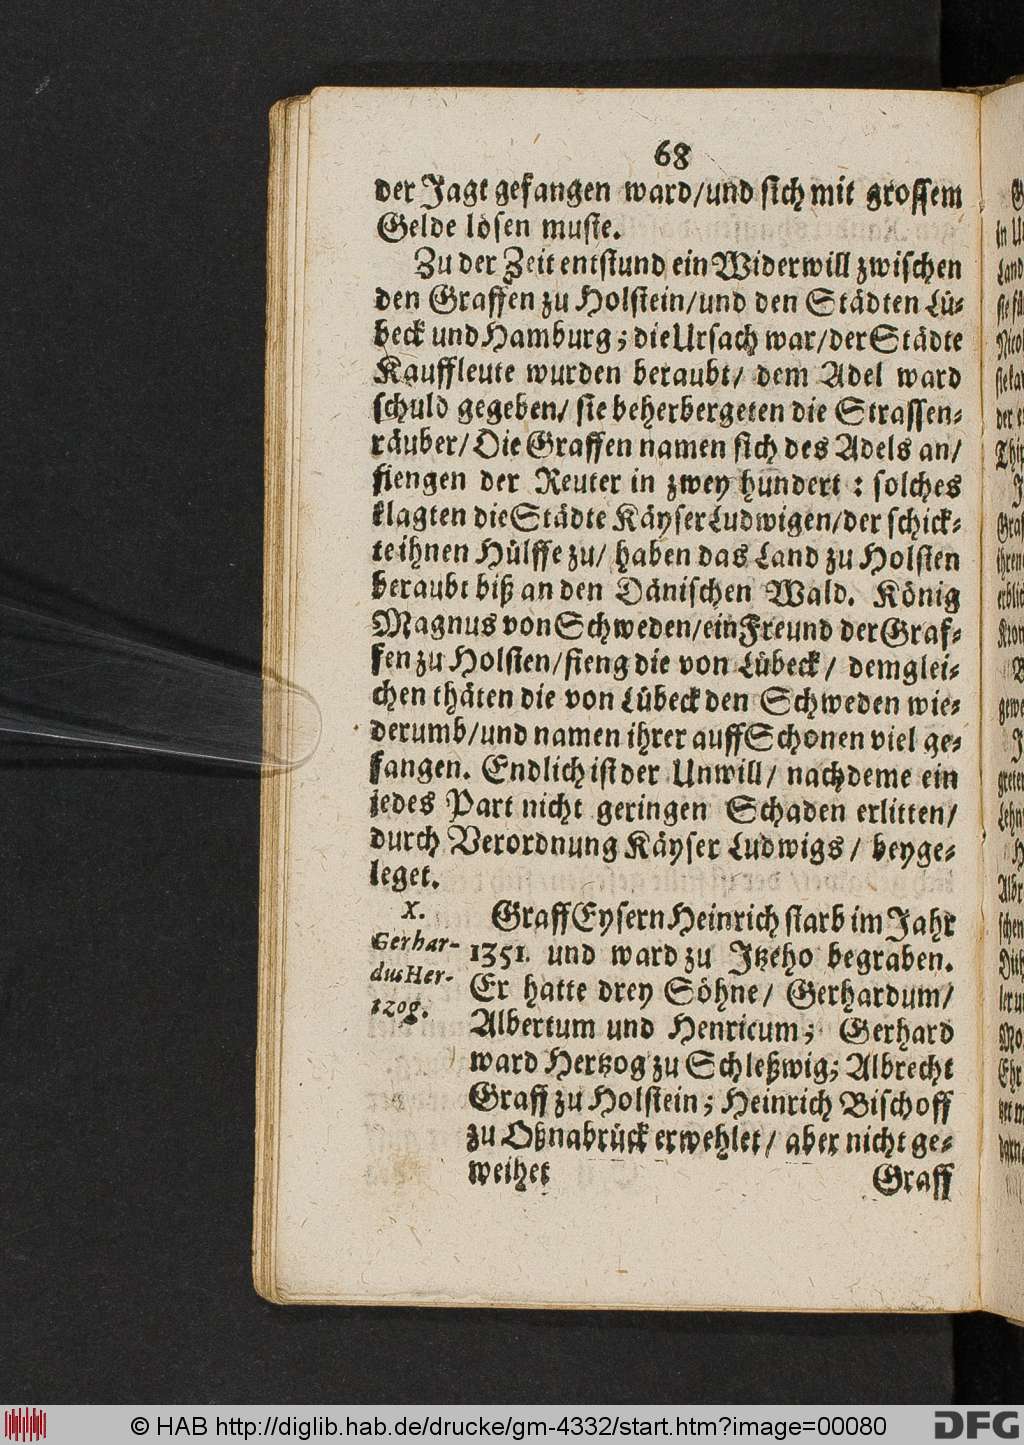 68
der Jagt gefangen ward/und sich mit grossem
Gelde lösen muste.
Zu der Zeit entstund ein Widerwill zwischen
den Graffen zu Holstein/und den Städten Lü-
beck und Hamburg; die Ursach war/der Städte
Kauffleute wurden beraubt/ dem Adel ward
schuld gegeben/ sie beherbergeten die Strassen-
räuber/ Die Graffen namen sich des Adels an/
fiengen der Reuter in zwey hundert : solches
klagten die Städte Käyser Ludwigen/der schick-
te ihnen Hülffe zu/ haben das Land zu Holsten
beraubt biß an den Dänischen Wald. König
Magnus von Schweden/ein Freund der Graf-
fen zu Holsten/fieng die von Lübeck/ demglei-
chen thäten die von Lübeck den Schweden wie-
derumb/und namen ihrer auff Schonen viel ge-
fangen. Endlich ist der Unwill/ nachdeme ein
jedes Part nicht geringen Schaden erlitten/
durch Verordnung Käyser Ludwigs / beyge-
leget.
X.
Gerhar-
dus Her-
tzog.
Graff Eysern Heinrich starb im Jahr
1351. und ward zu Itzeho begraben.
Er hatte drey Söhne/ Gerhardum/
Albertum und Henricum; Gerhard
ward Hertzog zu Schleßwig; Albrecht
Graff zu Holstein; Heinrich Bischoff
zu Oßnabrück erwehlet/ aber nicht ge-
weihet
Graff
© HAB http://diglib.hab.de/drucke/gm-4332/start.htm?image=00080
DFG